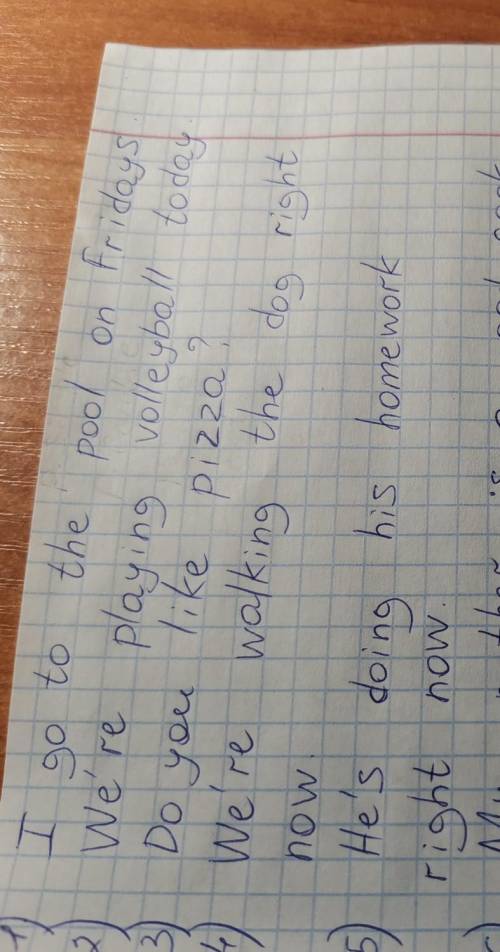 1) I go to the pool on Fridays.
2) We're playing volleyball today.
3) Do you like pizza?
4) We're walking the dog right
now.
5) He's doing his homework
right now.